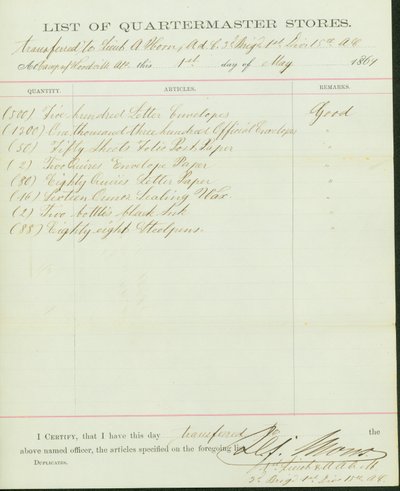 LIST OF QUARTERMASTER STORES.
transferred to Lieut A Morr, A d C. 3d Brig 1st Div 15th A C
At Camp of Woodville Ala. this 1st day of May 1864
QUANTITY. ARTICLES. REMARKS.
(500) Five hundred Letter Envelopes Good
(1300) One thousand three hundred Official Envelops "
(50) Fifty Sheets Folio Post Paper "
(2) Two Quires Envelope Paper "
(80) Eighty Quires Letter Paper "
(16) Sixteen Ounces Sealing Wax "
(2) Two bottles black Ink "
(88) Eighty eight Steelpens "
I CERTIFY, that I have this day transferred to the
above named officer, the articles specified on the foregoing list.
DUPLICATES.
1st Lieut
3d Brig 1st Div 15th A C